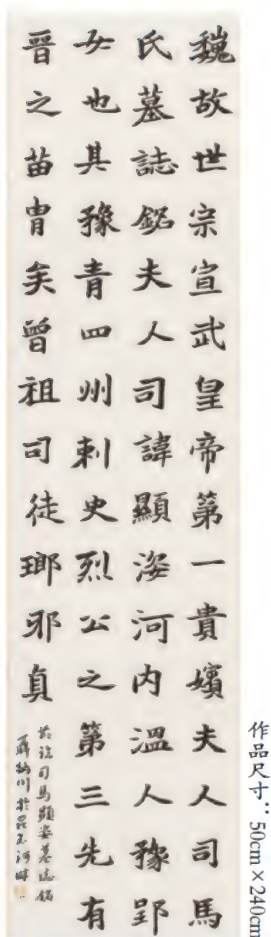 魏故世宗宣武皇帝第一貴嬪夫人司馬
氏墓誌銘夫人司諱顯姿河内溫人豫郢
女也其豫青四州刺史烈公之第三先有
晉之苗冑矣曾祖司徒瑯邪貞
司馬顯姿墓志銘
川於昆玉河畔
作品尺寸：50cm×240cm